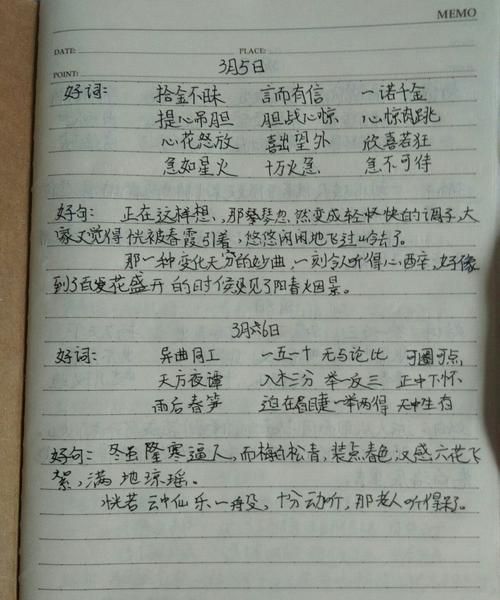 MEMO
DATE: PLACE:
POINT: 3月5日
好词: 拾金不昧 言而有信 一诺千金
提心吊胆 胆战心惊 心惊肉跳
心花怒放 喜出望外 欣喜若狂
急如星火 十万火急 急不可待
好句: 正在这样想、那琴琴忽然变成轻怪快的调子,大
家又觉得恍被春霞引着,悠悠闲闲地飞过山今去了。
那一种变化无穷的妙曲,一刻令人听得心酉卒,好像
到了百发花盛开的时侯见了阳春烟景。
3月6日
好词: 异曲同工 一五一十 无与论比 可圈可点
天方夜谭 入木三分 举一反三 正中下怀
雨后春笋 迫在眉睫 一举两得 无中生有
好句: 冬虽隆寒逼人,而梅白松青,装点春色,汉感六花飞
絮,满地琼瑶。
恍若云中仙乐一般,十分动听,那老人听得呆了。